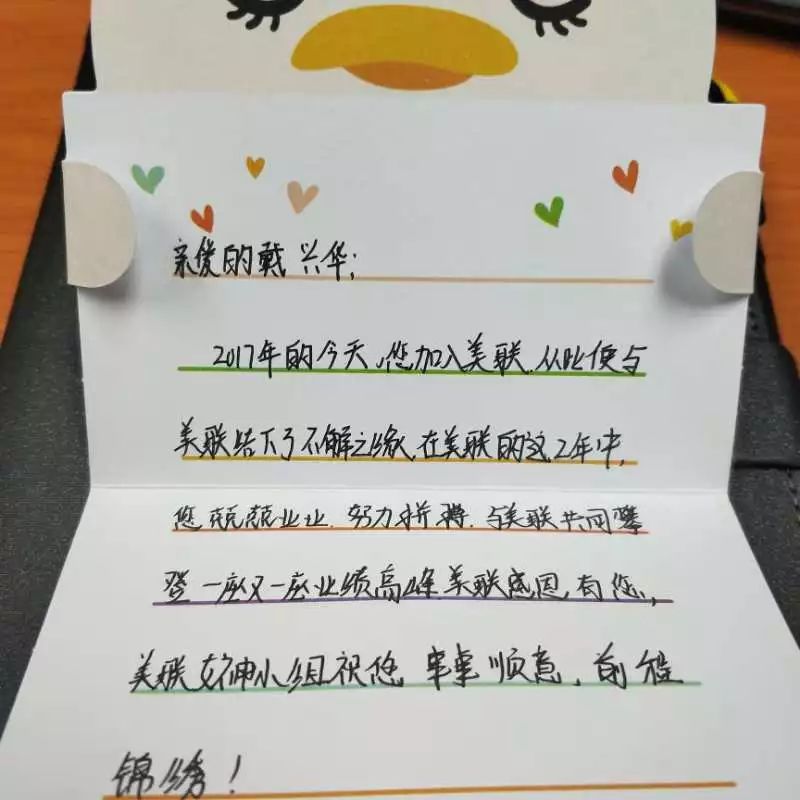 亲爱的戴兴华:
2017年的今天,您加入美联.从此便与
美联结下了不解之缘,在美联的这2年中,
您兢兢业业.努力拼搏.与美联共同攀
登一座又一座业绩高峰.美联感恩有您,
美联女神小组祝您事事顺意,前程
锦绣!